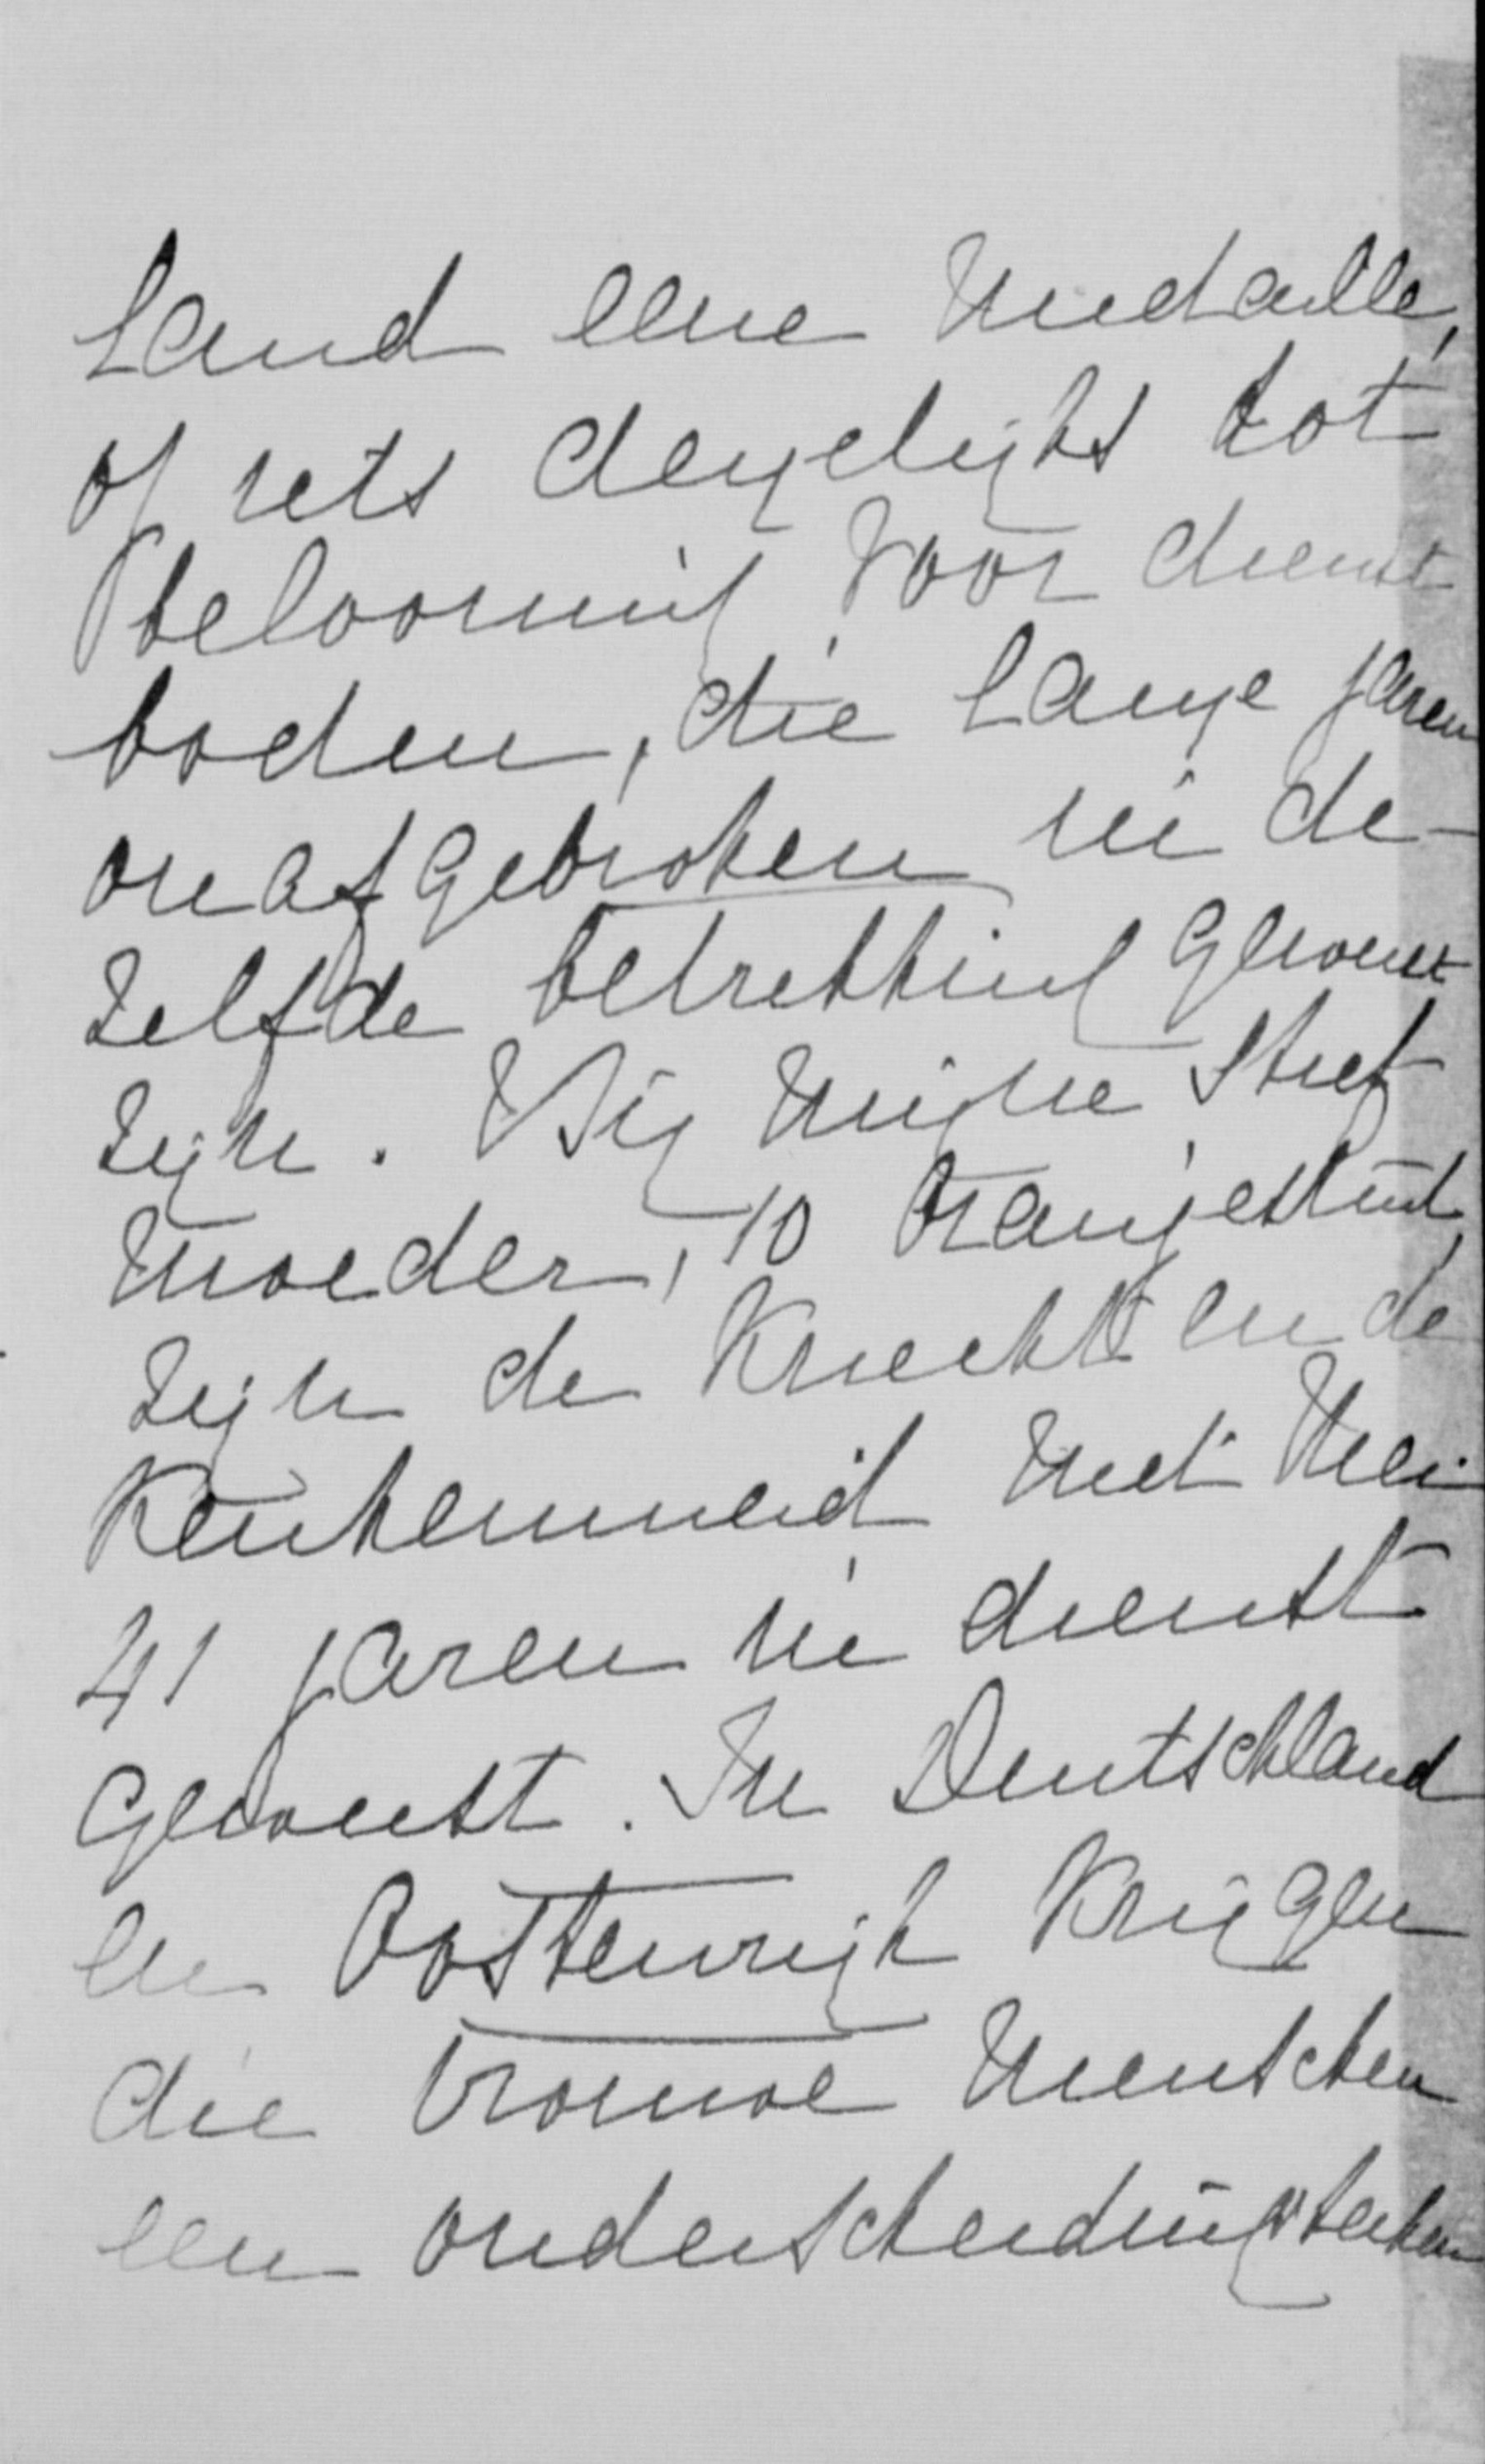 Land eene medaille,
of iets dergelijks tot
belooning voor dienst
boden, die lange jaren
onafgebroken in de-
zelfde betrekking geweest
zijn. Bij mijne Stief
moeder, 10 Oranjestraat,
zijn de Knecht en de
Keukenmeid met Mei
41 jaren in dienst
geweest. In Deutschland
en Oostenrijk krijgen
die trouwe menschen
een onderscheidingsteeken